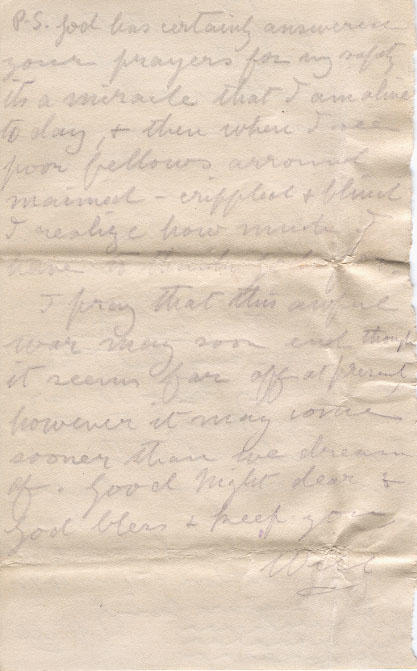 P.S. God has certainly answered
your prayers for my safety
its a miracle that I am alive
today, & then when I see
poor fellows arround
maimed - crippled & blind
I realize how much I
have to thank
I pray that this awful
war may soon end though
it seems far off at present
however it may come
sooner than we dream
of. Good Night dear &
God bless & keep you
Will